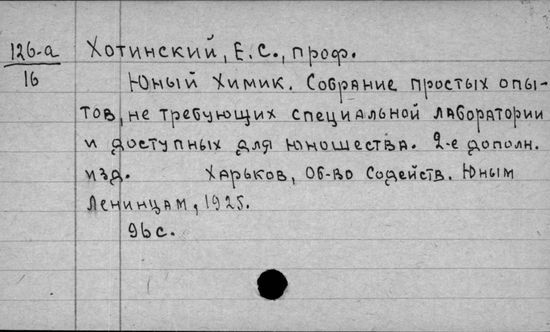 126-а Хотинский, Е.С., проф.
16 Юный Химик. Собрание простых опы-
тов, не требующих специальной лаборатории
и доступных для юношества. 2-е дополн.
изд. Харьков, Об-во Содейств. Юным
Ленинцам, 1925.
96 с.